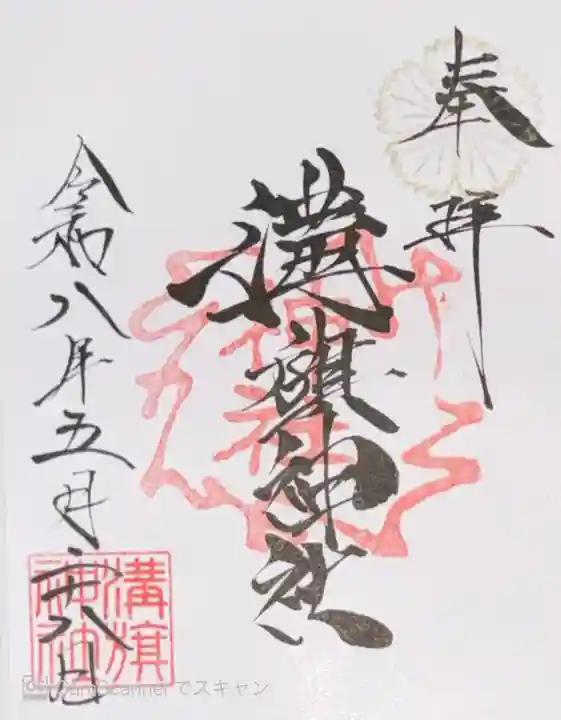 奉拝
溝旗神社
令和八年五月二十八日
溝旗
神社
CamScanner でスキャン